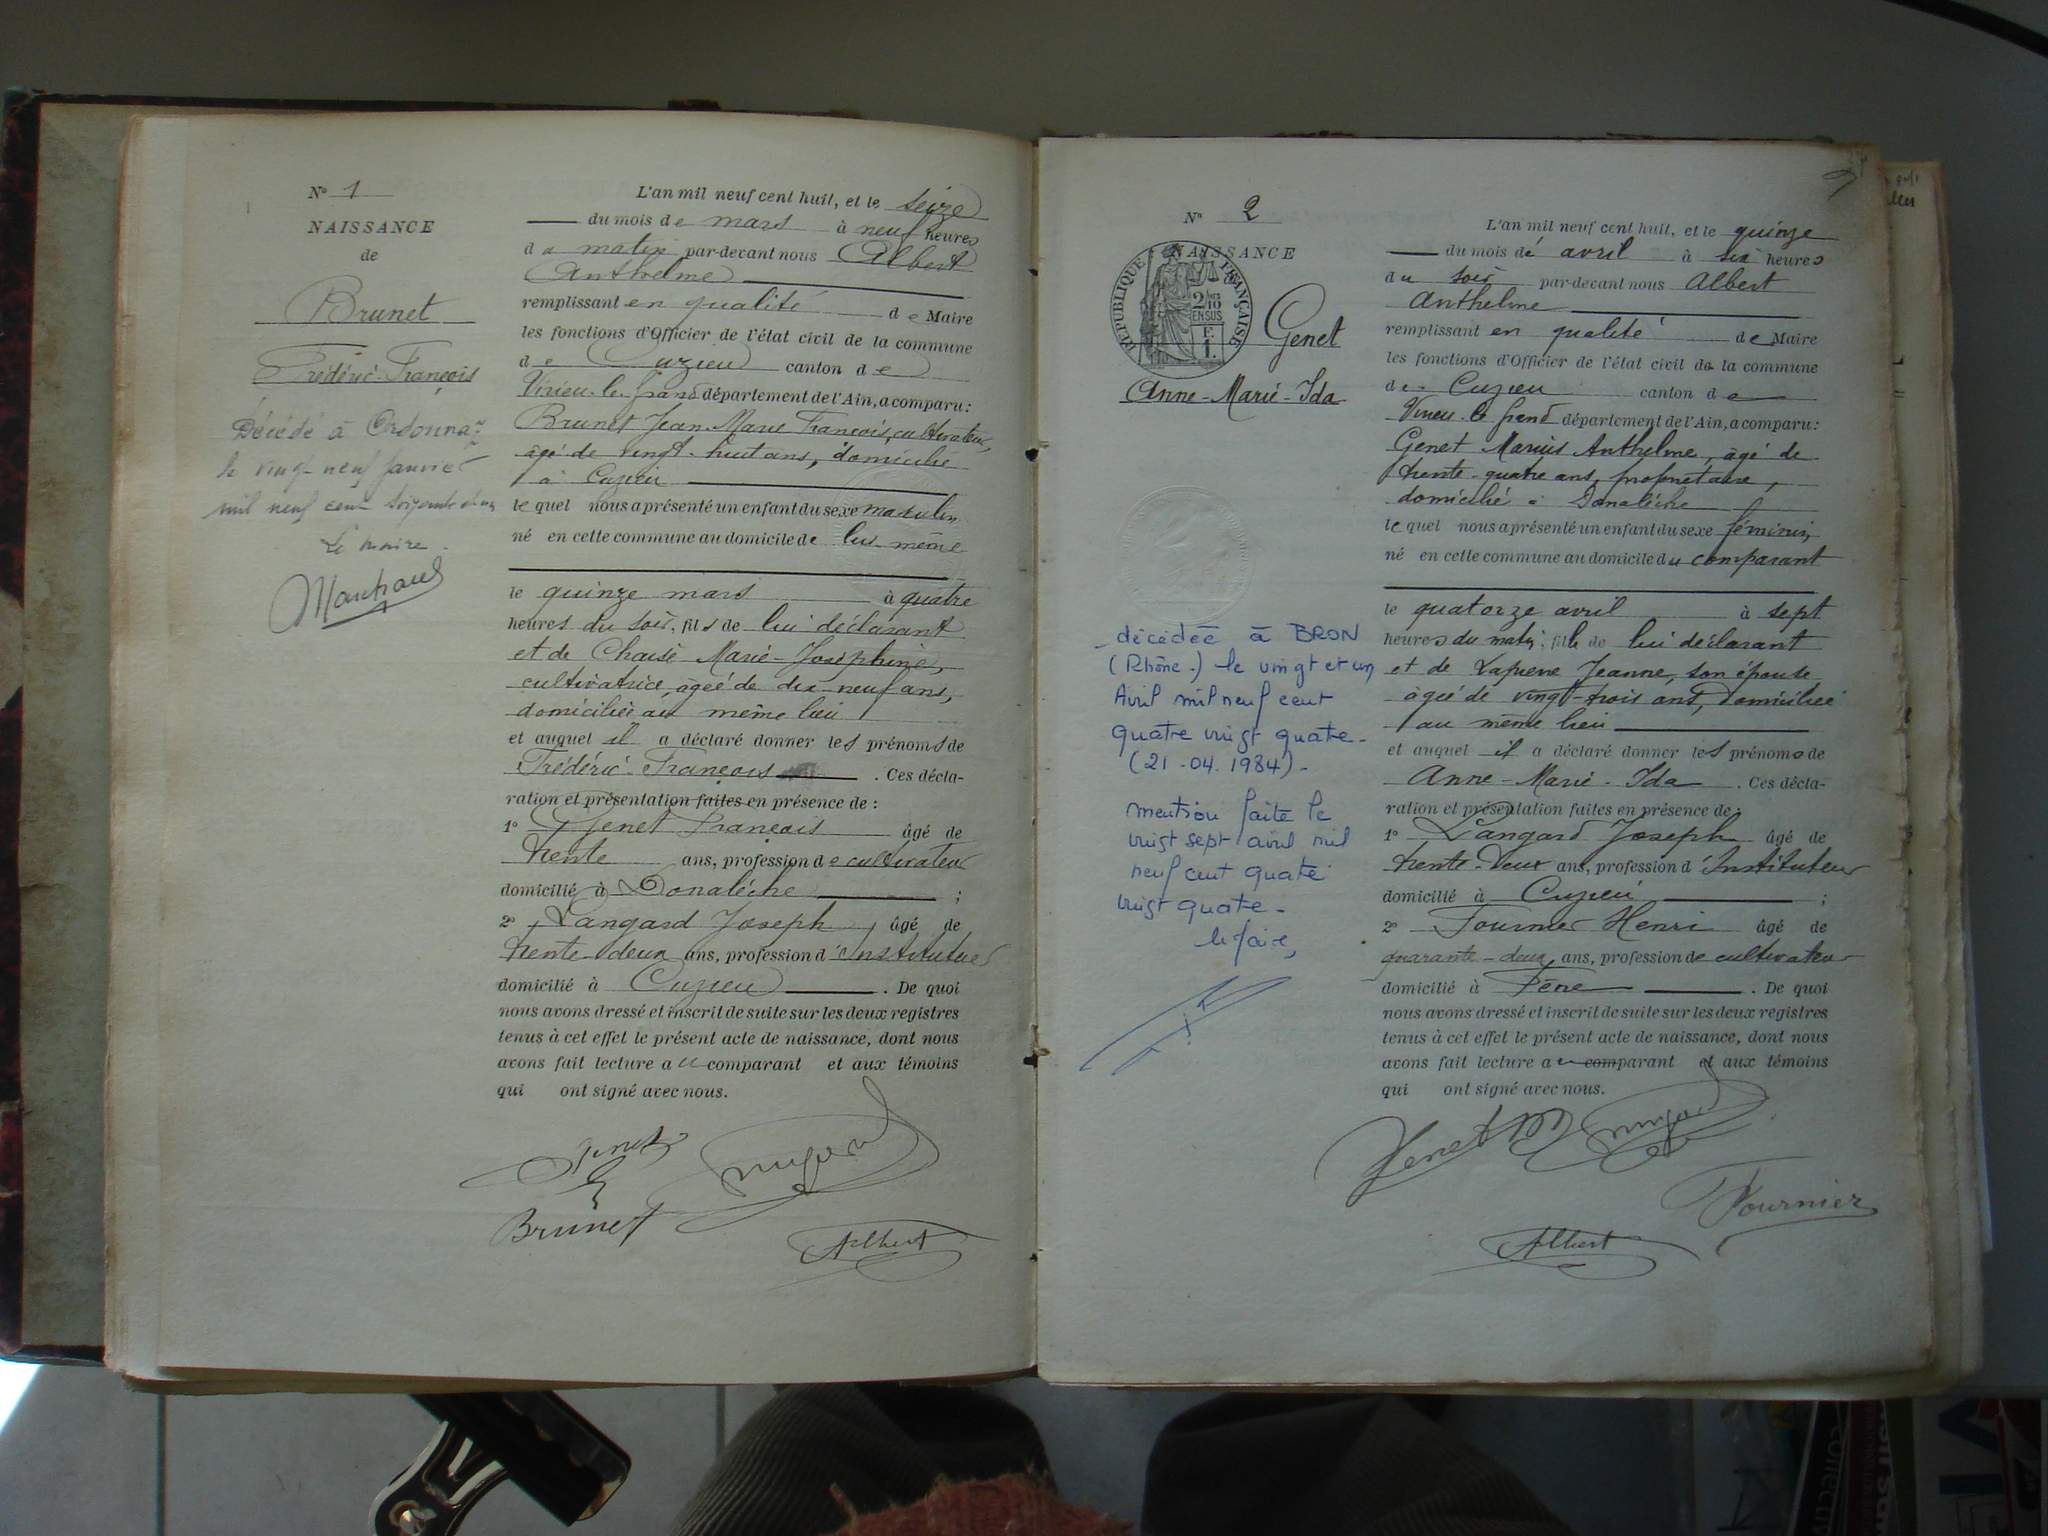 N° 1
NAISSANCE
de
Brunet
Frédéric-François
Décédé à Ordonnaz
le vingt-neuf janvier
mil neuf cent soixante et un
Le Maire.
L'an mil neuf cent huit, et le seize
du mois de mars à neuf heures
du matin par-devant nous Albert
Anthelme
remplissant en qualité de Maire
les fonctions d'Officier de l'état civil de la commune
de Cuzieu canton de
Virieu-le-Grand département de l'Ain, a comparu:
Brunet Jean-Marie François, cultivateur,
âgé de vingt-huit ans, domicilié
à Cuzieu
lequel nous a présenté un enfant du sexe masculin
né en cette commune au domicile de lui-même
le quinze mars à quatre
heures du soir, fils de lui déclarant
et de Chaise Marie-Joséphine,
cultivatrice, âgée de dix-neuf ans,
domiciliée au même lieu
et auquel il a déclaré donner les prénoms de
Frédéric-François . Ces décla-
ration et présentation faites en présence de :
1° Genet François âgé de
trente ans, profession de cultivateur
domicilié à Donalèche ;
2° Langard Joseph, âgé de
trente-deux ans, profession d'instituteur
domicilié à Cuzieu . De quoi
nous avons dressé et inscrit de suite sur les deux registres
tenus à cet effet le présent acte de naissance, dont nous
avons fait lecture au comparant et aux témoins
qui ont signé avec nous.
Genet
Brunet
Albert
N° 2
NAISSANCE
RÉPUBLIQUE FRANÇAISE
2/10
EN SUS
F.
1.
Genet
Anne-Marie-Ida
décédée à BRON
(Rhône.) le vingt et un
Avril mil neuf cent
quatre vingt quatre.
(21-04.1984)-
mention faite le
vingt sept avril mil
neuf cent quatre
vingt quatre.
le Maire,
L'an mil neuf cent huit, et le quinze
du mois de avril à six heures
du soir par-devant nous Albert
Anthelme
remplissant en qualité de Maire
les fonctions d'Officier de l'état civil de la commune
de Cuzieu canton de
Virieu-le-Grand département de l'Ain, a comparu:
Genet Marius Anthelme, âgé de
trente-quatre ans, propriétaire,
domicilié à Donalèche
lequel nous a présenté un enfant du sexe féminin,
né en cette commune au domicile du comparant
le quatorze avril à sept
heures du matin, fille de lui déclarant
et de Jeanne, son épouse
âgée de vingt-trois ans, domiciliée
au même lieu
et auquel il a déclaré donner les prénoms de
Anne-Marie-Ida . Ces décla-
ration et présentation faites en présence de :
1° Langard Joseph âgé de
trente-deux ans, profession d'instituteur
domicilié à Cuzieu ;
2° Fournier Henri âgé de
quarante-deux ans, profession de cultivateur
domicilié à . De quoi
nous avons dressé et inscrit de suite sur les deux registres
tenus à cet effet le présent acte de naissance, dont nous
avons fait lecture au comparant et aux témoins
qui ont signé avec nous.
Genet
Fournier
Albert